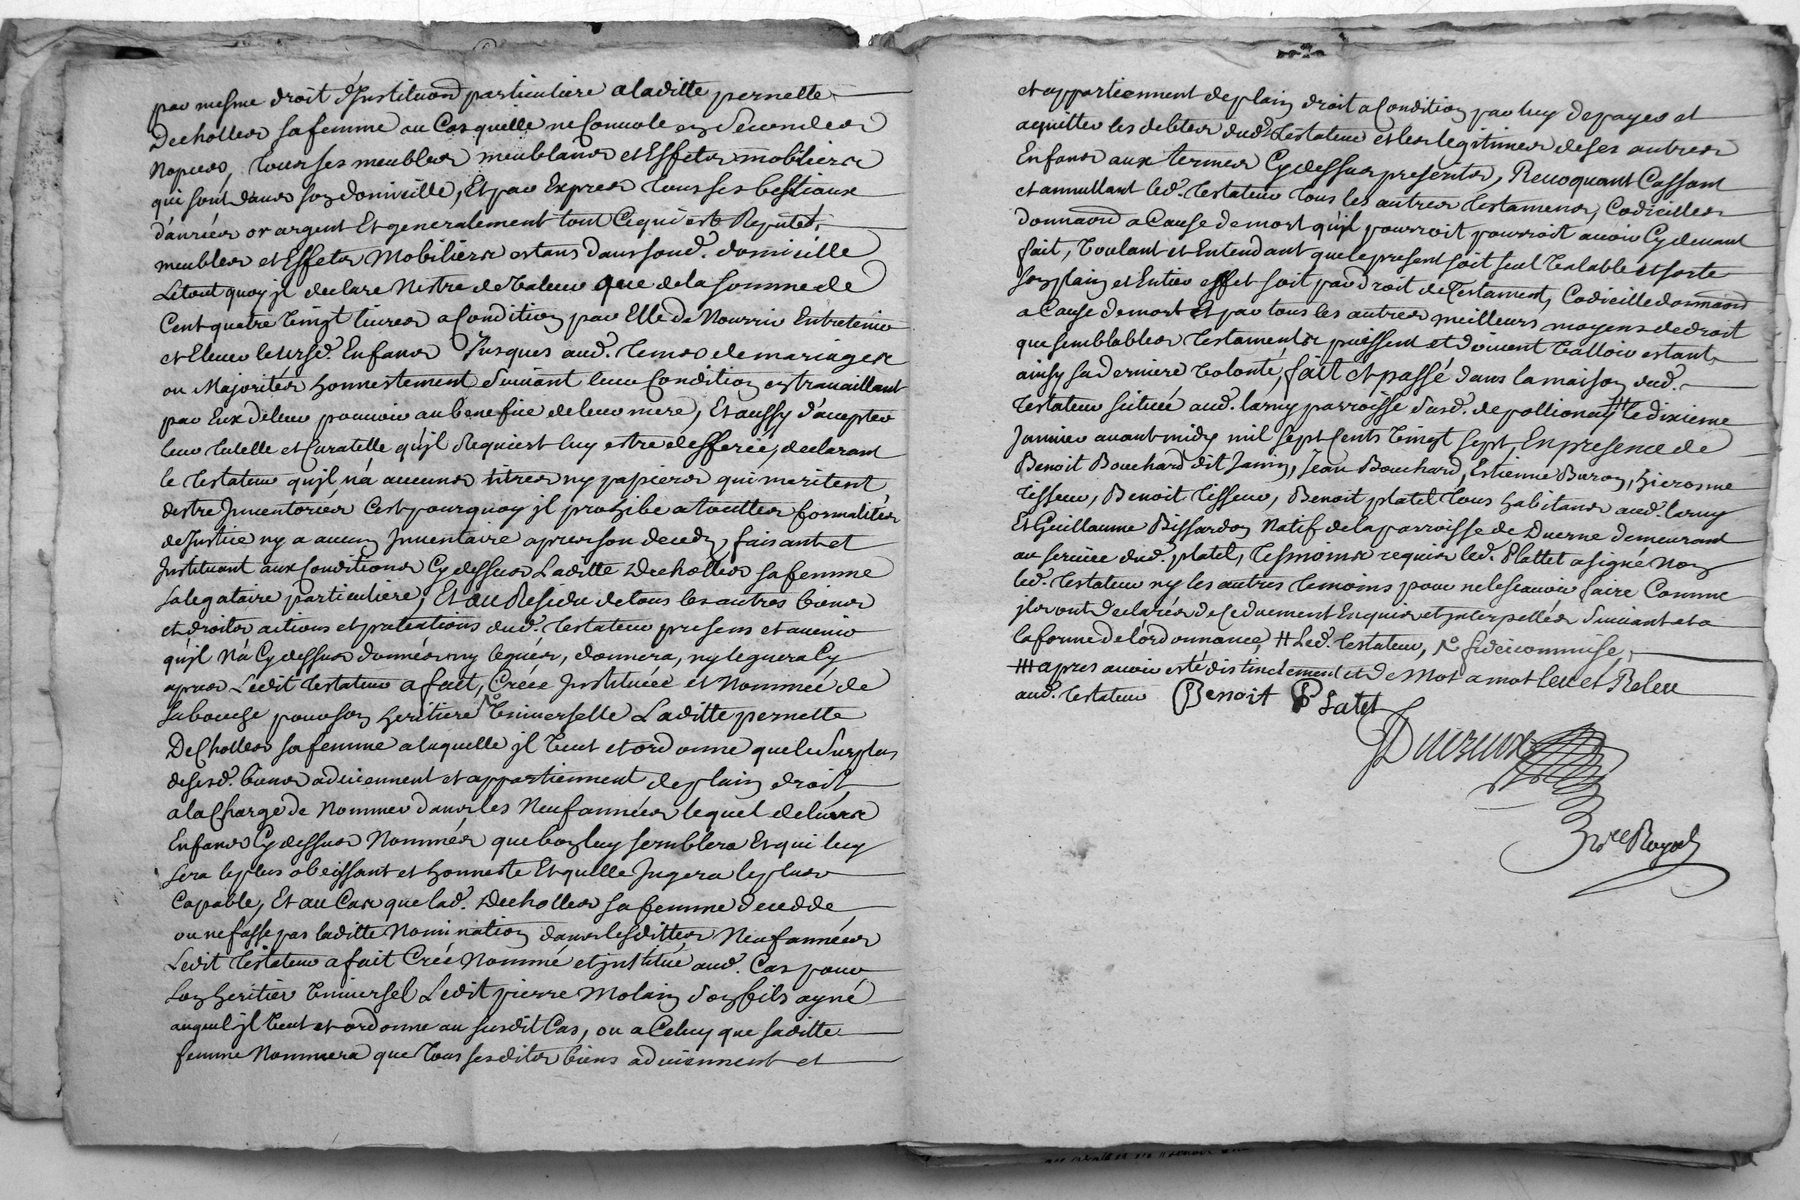 par mesme droit d'Institution particuliere a laditte pernette
Decholler sa femme au Cas quelle ne Convole en Secondes
Nopces, tous ses meubles meublans et Effets mobiliers
qui sont dans son domicille, Et par Exprez tous ses bestiaux
danrées or argent Et generalement tout Ce qui est Reputé
meubles et Effets Mobiliers estans dans sond. domicille
Le tout quoy jl declare N'estre de Valeur que de la somme de
Cent quatre Vingt livres a Condition par Elle de Nourrir Entretenir
et Elever leursd. Enfans Jusques aud. temps de mariages
ou Majorités honnestement Suivant leur Condition en travaillant
par Eux de leur pouvoir au benefice de leur mere, Et aussy d'accepter
leur tutelle et Curatelle qu'jl Requiert luy estre defferée, declarant
le testateur qu'jl n'a aucuns titres ny papiers qui meritent
destre Inventoriés C'est pourquoy jl prohibe a touttes formalités
de Justice ny a aucun Inventaire apres son deceds, faisant et
Instituant aux Conditions Cy dessus Laditte Decholler sa femme
sa legataire particuliere, Et au Residu de tous les autres biens
et droits actions et pretentions dud. testateur presens et avenir
qu'jl N'a Cy dessus donnés ny legués, donnera, ny leguera Cy
apres Ledit testateur a fait, Créée Instituée et Nommée de
sa bouche pour son heritiere Universelle Laditte pernette
Decholler sa femme a laquelle jl Veut et ordonne que le Surplus
de sesd. biens adviennent et appartiennent de plain droit
a la Charge de Nommer dans les Neuf années lequel de leurs
Enfans Cy dessus Nommés que bon luy semblera Et qui luy
sera le plus obeissant et honneste Et quelle Jugera le plus
Capable, Et au Cas que lad. Decholler sa femme decedde
ou ne fasse pas laditte Nomination dans lesdittes Neuf années
Ledit testateur a fait Créé Nommé et jnstitué aud. Cas pour
son heritier Universel Ledit pierre Molain son fils ayné
auquel jl Veut et ordonne au susdit Cas, ou a Celuy que saditte
femme Nommera que tous sesdits biens adviennent et
et appartiennent de plain droit a Condition par luy de payer et
aquitter les debtes dud. testateur et les legitimes de ses autres
Enfans aux termes Cy dessus prescrites, Revoquant Cassant
et annullant led. testateur tous les autres testamens, Codicilles
donnaons a Cause de mort qu'jl pourroit pourroit avoir Cy devant
fait, Voulant et Entendant que le present soit seul Valable et sorte
son plain et Entier effet soit par droit de testament, Codicille donnaon
a Cause de mort Et par tous les autres meilleurs moyens de droit
que semblables testaments puissent et doivent Valloir estant
ainsy sa derniere Volonté, fait et passé dans la maison dud.
testateur scituée aud. larny parroisse susd. de pollionay # le dixieme
Janvier avant midy mil sept Cents Vingt sept, En presence de
Benoit Bouchard dit Janin, Jean Bouchard, Estienne Buron, hierosme
tisseur, Benoit tisseur, Benoit platel tous habitans aud. larny
Et Guillaume Bissardon Natif de la parroisse de Duerne demeurant
au service dud. platel, tesmoins requis led. Plattet a signé Non
led. testateur ny les autres temoins pour ne le scavoir faire Comme
jls ont declarés de Ce duement Enquis et jnterpellés Suivant et a
la forme de l'ordonnance, # Led. testateur, fideicommise,
### apres avoir esté distinctement et de Mot a mot leu et Releu
aud. testateur Benoit Platel